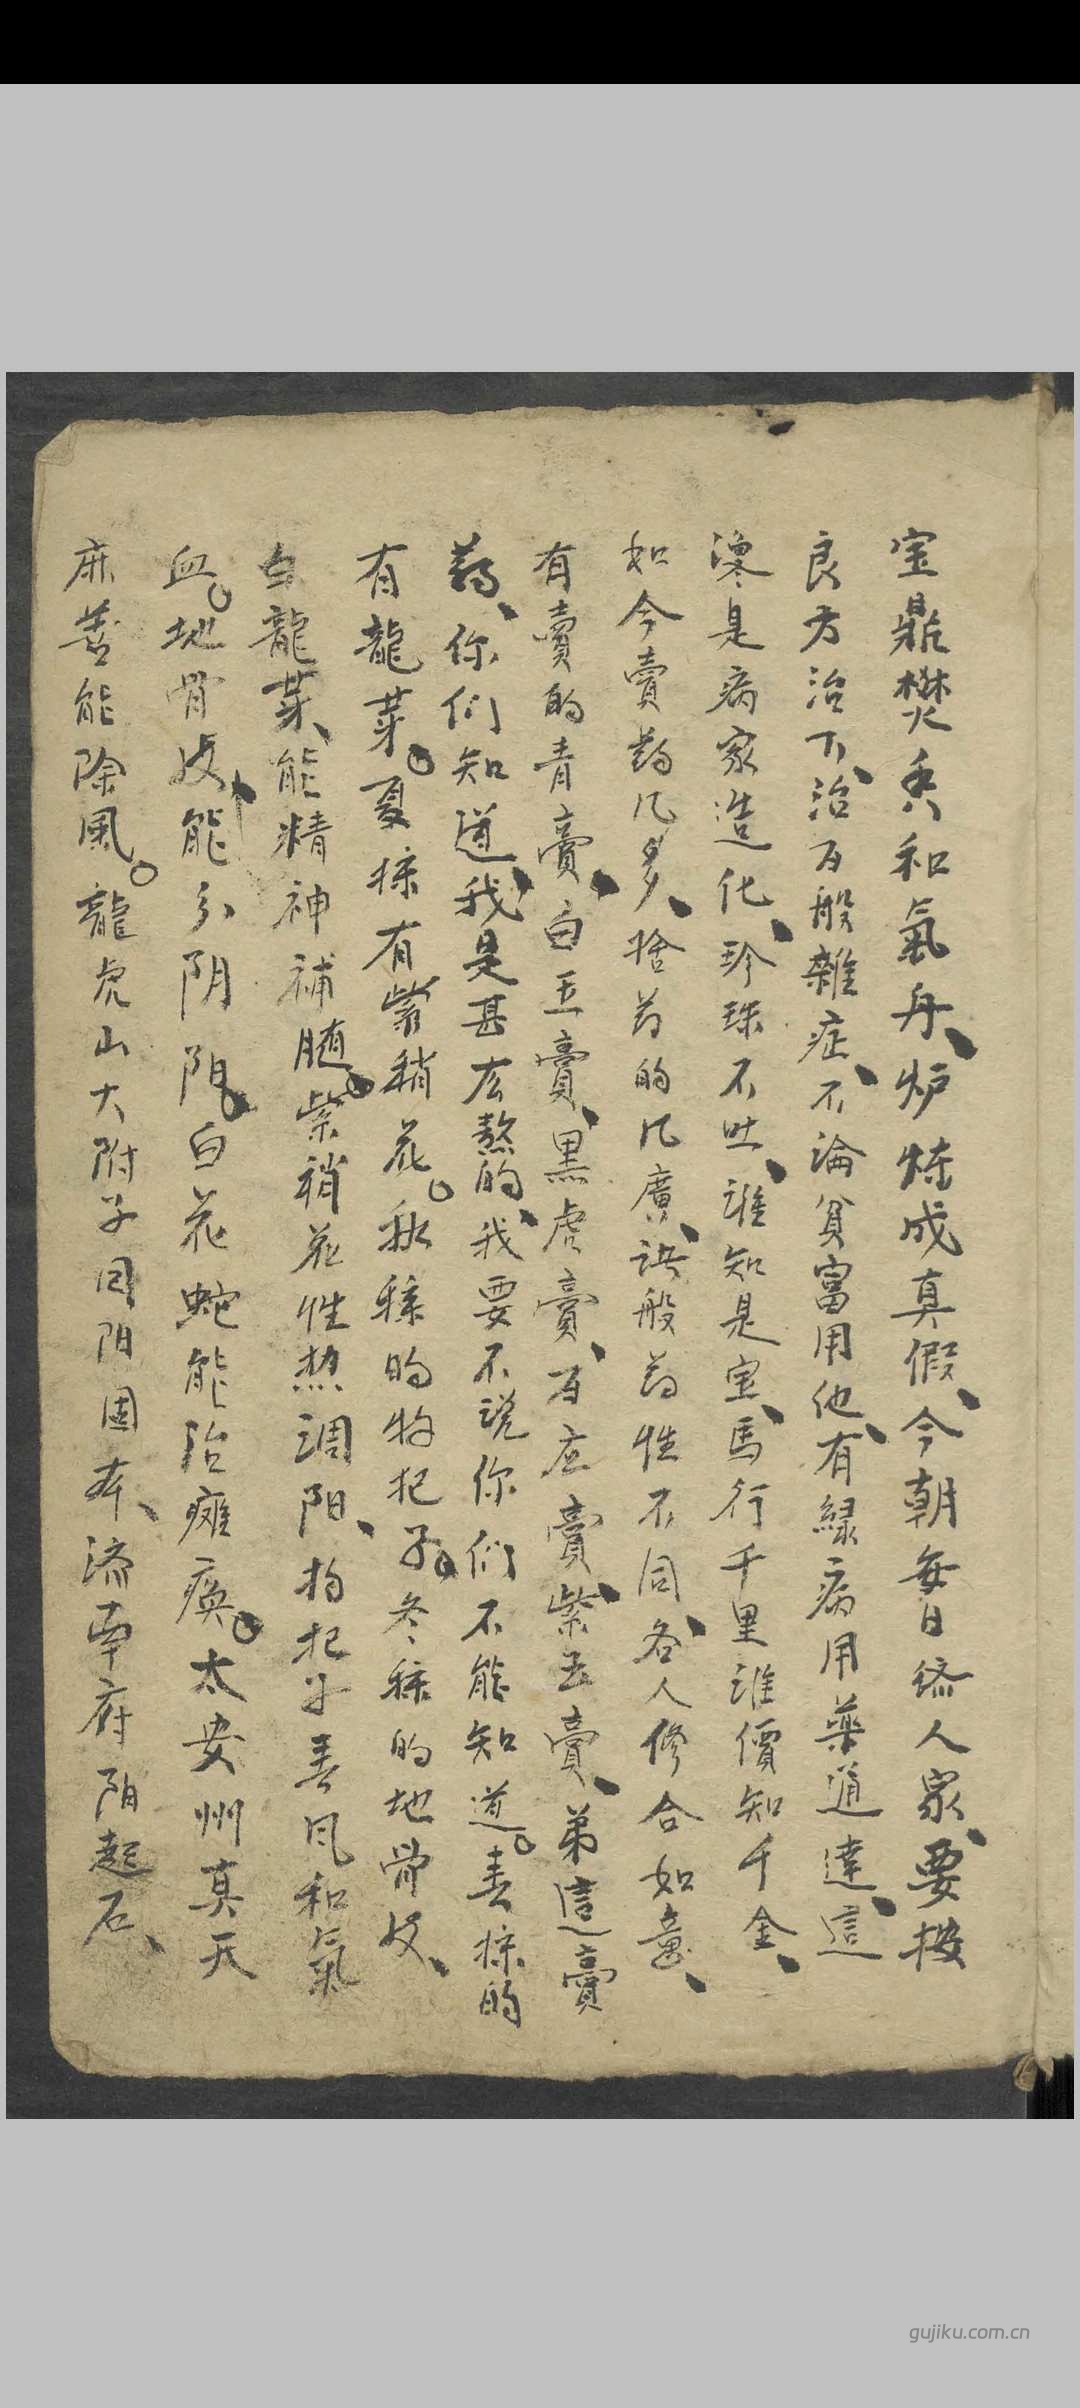 宝鼎焚香和氣丹、炉煉成真假、今朝每日済人家、要按
良方治下、治百般雜症、不論貧富用他、有緑病用藥通達、這
凜是病家造化、珍珠不吐、誰知是宝、馬行千里誰價知千金、
如今賣药几多、捨药的几廣、諸般药性不同、各人修合如意、
有賣的青膏、白玉膏、黑虎膏、百应膏、紫玉膏、弟這膏
药、你们知道、我是甚広熬的、我要不説你们不能知道。春採的
有龍芽。夏採有紫稍花。秋採的枸杞子。冬採的地骨皮、
白龍芽、能精神補髄。紫稍花性热調陽、枸杞子春风和氣
血。地骨皮能分阴阳。白花蛇能治癱瘓。太安州真天
麻善能除風。龍虎山大附子囘阳固本、济南府阳起石、
gujiku.com.cn